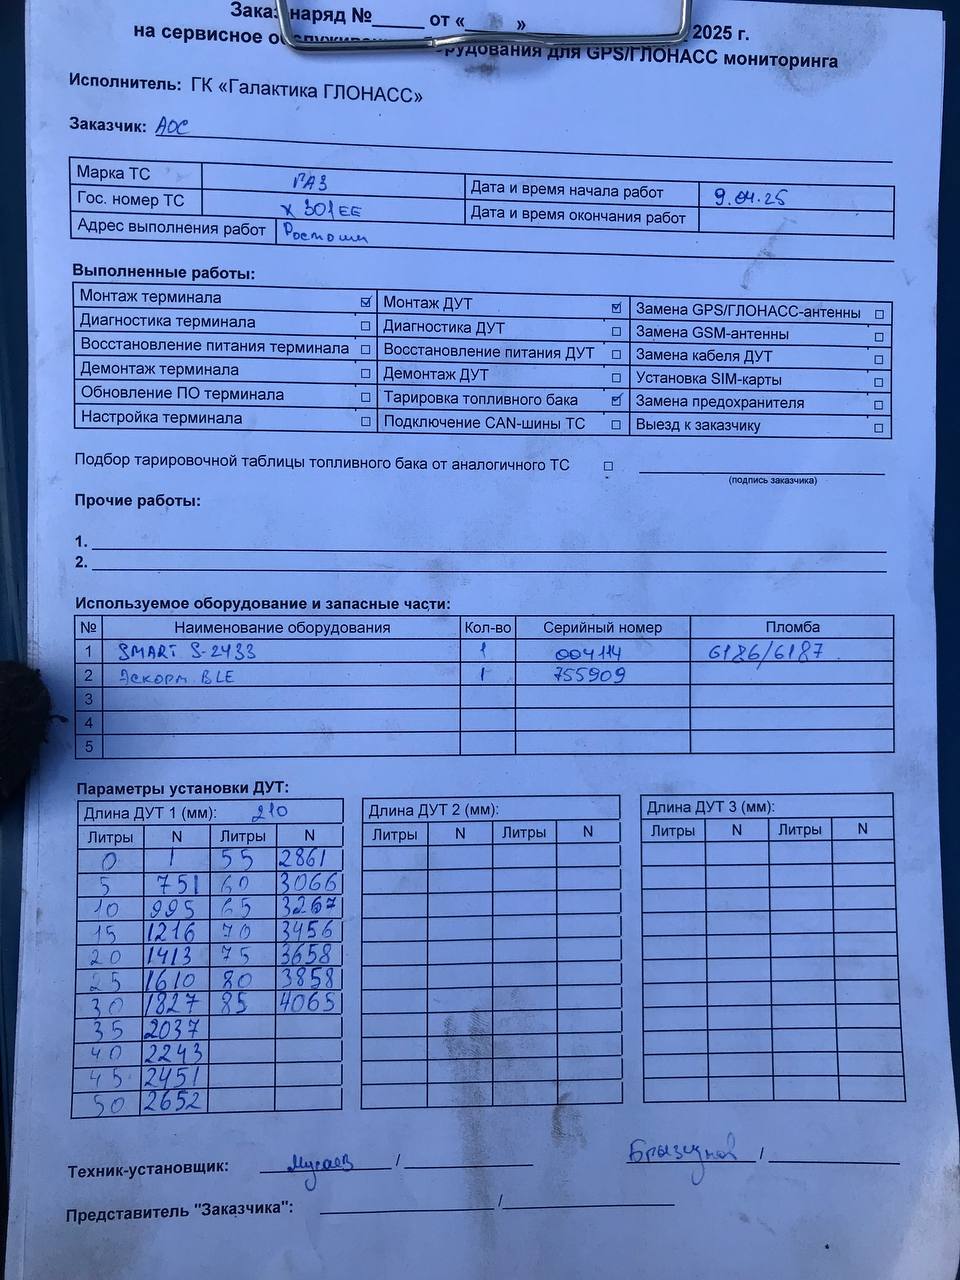 Заказ наряд №_____ от «    » 2025 г.
на сервисное обслуживание оборудования для GPS/ГЛОНАСС мониторинга
Исполнитель: ГК «Галактика ГЛОНАСС»
Заказчик: АОС
Марка ТС ГАЗ Дата и время начала работ 9.04.25
Гос. номер ТС х 301 ЕЕ Дата и время окончания работ
Адрес выполнения работ
Выполненные работы:
Монтаж терминала ☑ Монтаж ДУТ ☑ Замена GPS/ГЛОНАСС-антенны ☐
Диагностика терминала ☐ Диагностика ДУТ ☐ Замена GSM-антенны ☐
Восстановление питания терминала ☐ Восстановление питания ДУТ ☐ Замена кабеля ДУТ ☐
Демонтаж терминала ☐ Демонтаж ДУТ ☐ Установка SIM-карты ☐
Обновление ПО терминала ☐ Тарировка топливного бака ☑ Замена предохранителя ☐
Настройка терминала ☐ Подключение CAN-шины ТС ☐ Выезд к заказчику ☐
Подбор тарировочной таблицы топливного бака от аналогичного ТС ☐
(подпись заказчика)
Прочие работы:
1.
2.
Используемое оборудование и запасные части:
№ Наименование оборудования Кол-во Серийный номер Пломба
1 SMART S-2433 1 004114 6186/6187
2 Эскорт BLE 1 755909
3
4
5
Параметры установки ДУТ:
Длина ДУТ 1 (мм): 210 Длина ДУТ 2 (мм): Длина ДУТ 3 (мм):
Литры N Литры N Литры N Литры N Литры N Литры N
0 1 55 2861
5 751 60 3066
10 995 65 3267
15 1216 70 3456
20 1413 75 3658
25 1610 80 3858
30 1827 85 4065
35 2037
40 2243
45 2451
50 2652
Техник-установщик: Мусаев /            /
Представитель "Заказчика": /